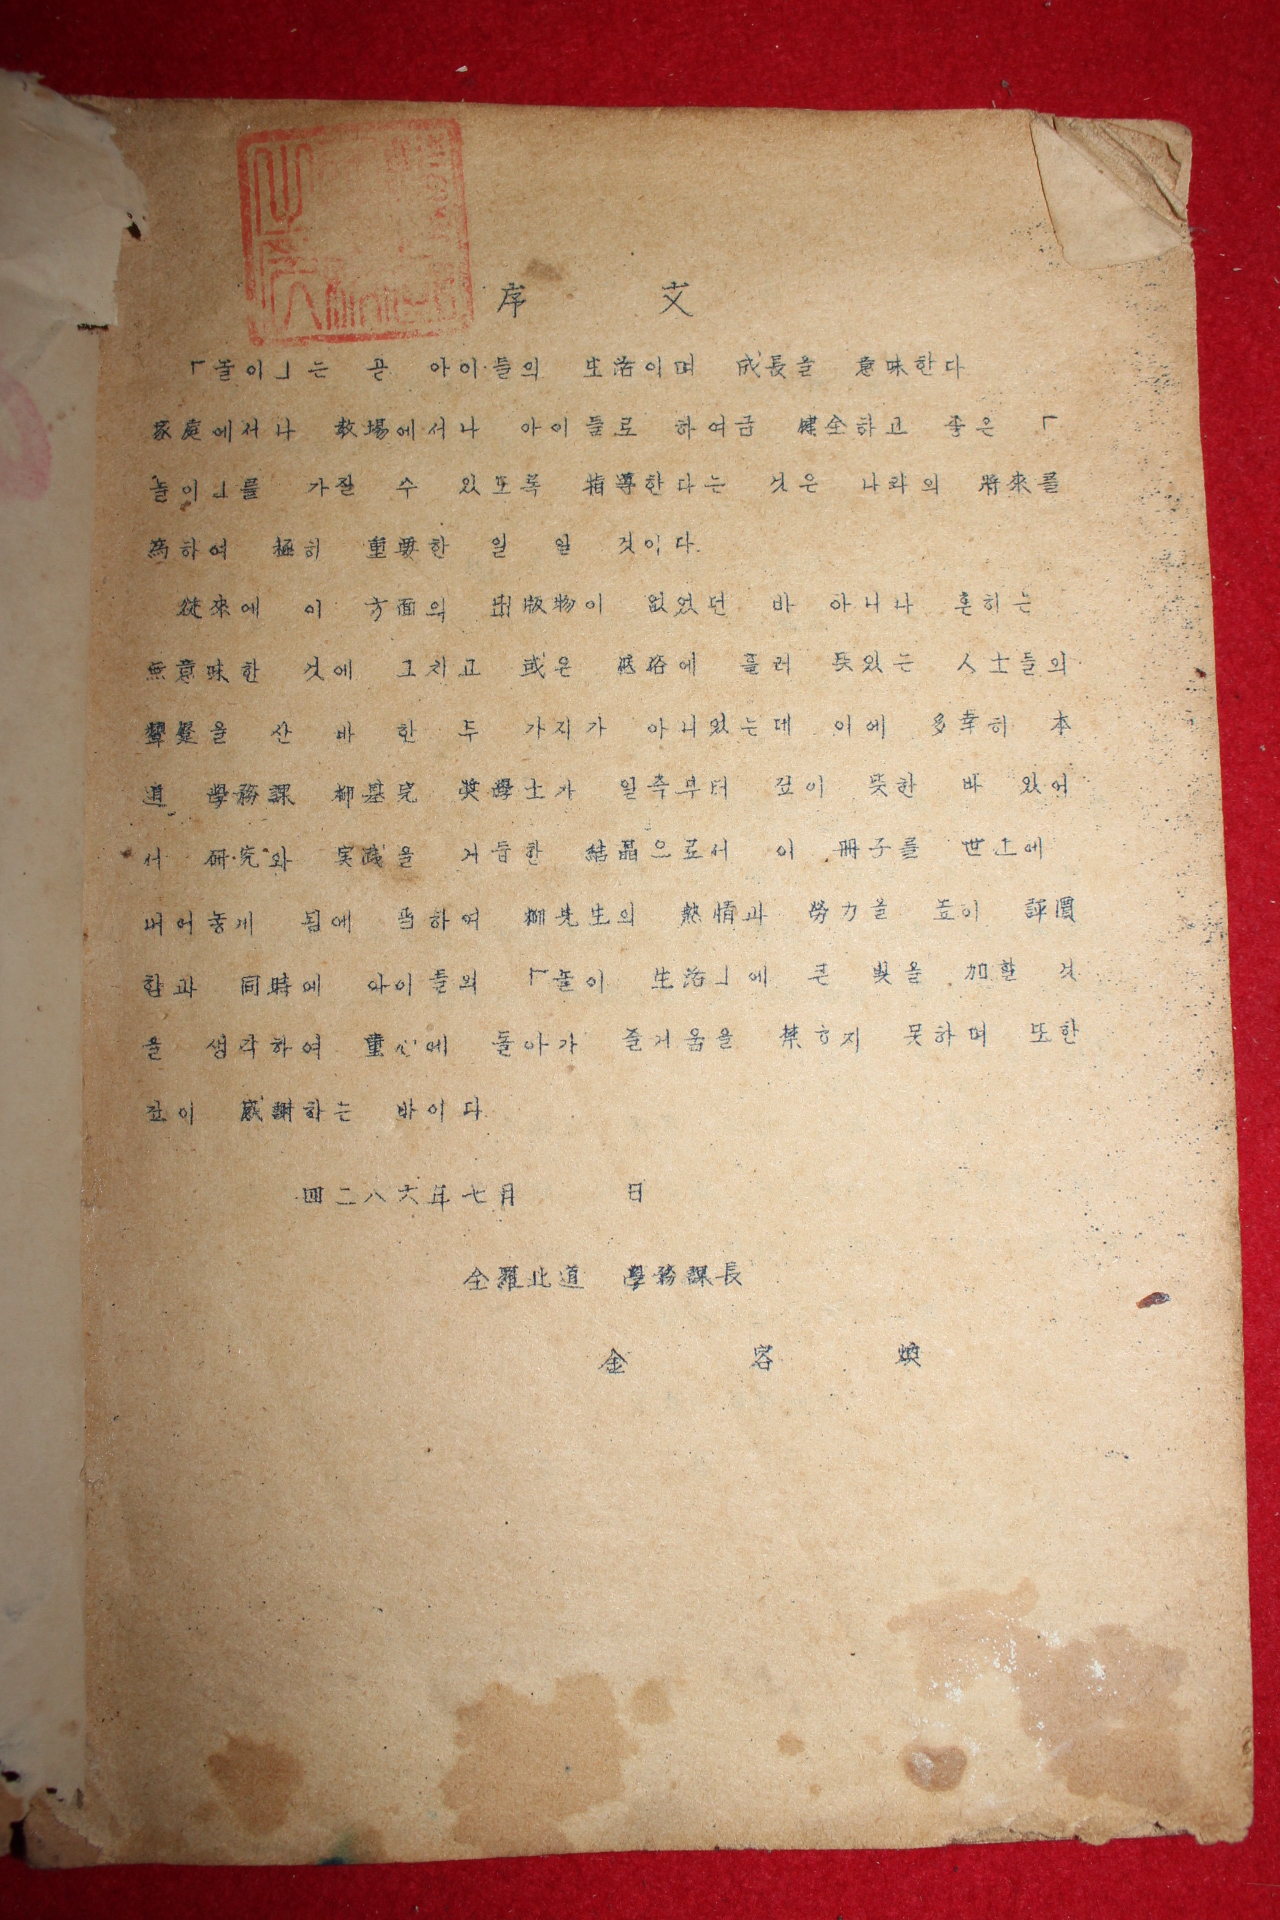 序 文
「놀이」는 곧 아이들의 生活이며 成長을 意味한다
家庭에서나 敎場에서나 아이들로 하여금 健全하고 좋은 「
놀이」를 가질 수 있도록 指導한다는 것은 나라의 將來를
爲하여 極히 重要한 일 일 것이다.
從來에 이 方面의 出版物이 없었던 바 아니나 흔히는
無意味한 것에 그치고 或은 低俗에 흘러 뜻있는 人士들의
을 산 바 한 두 가지가 아니었는데 이에 多幸히 本
道 學務課 柳基完 奬學士가 일즉부터 깊이 뜻한 바 있어
서 硏究와 実践을 거듭한 結晶으로서 이 冊子를 世上에
내어놓게 됨에 当하여 柳先生의 熱情과 勞力을 높이 評價
함과 同時에 아이들의 「놀이 生活」에 큰 을 加한 것
을 생각하여 童心에 돌아가 즐거움을 禁하지 못하며 또한
깊이 感謝하는 바이다.
四二八六年七月 日
全羅北道 學務課長
金 容 煥